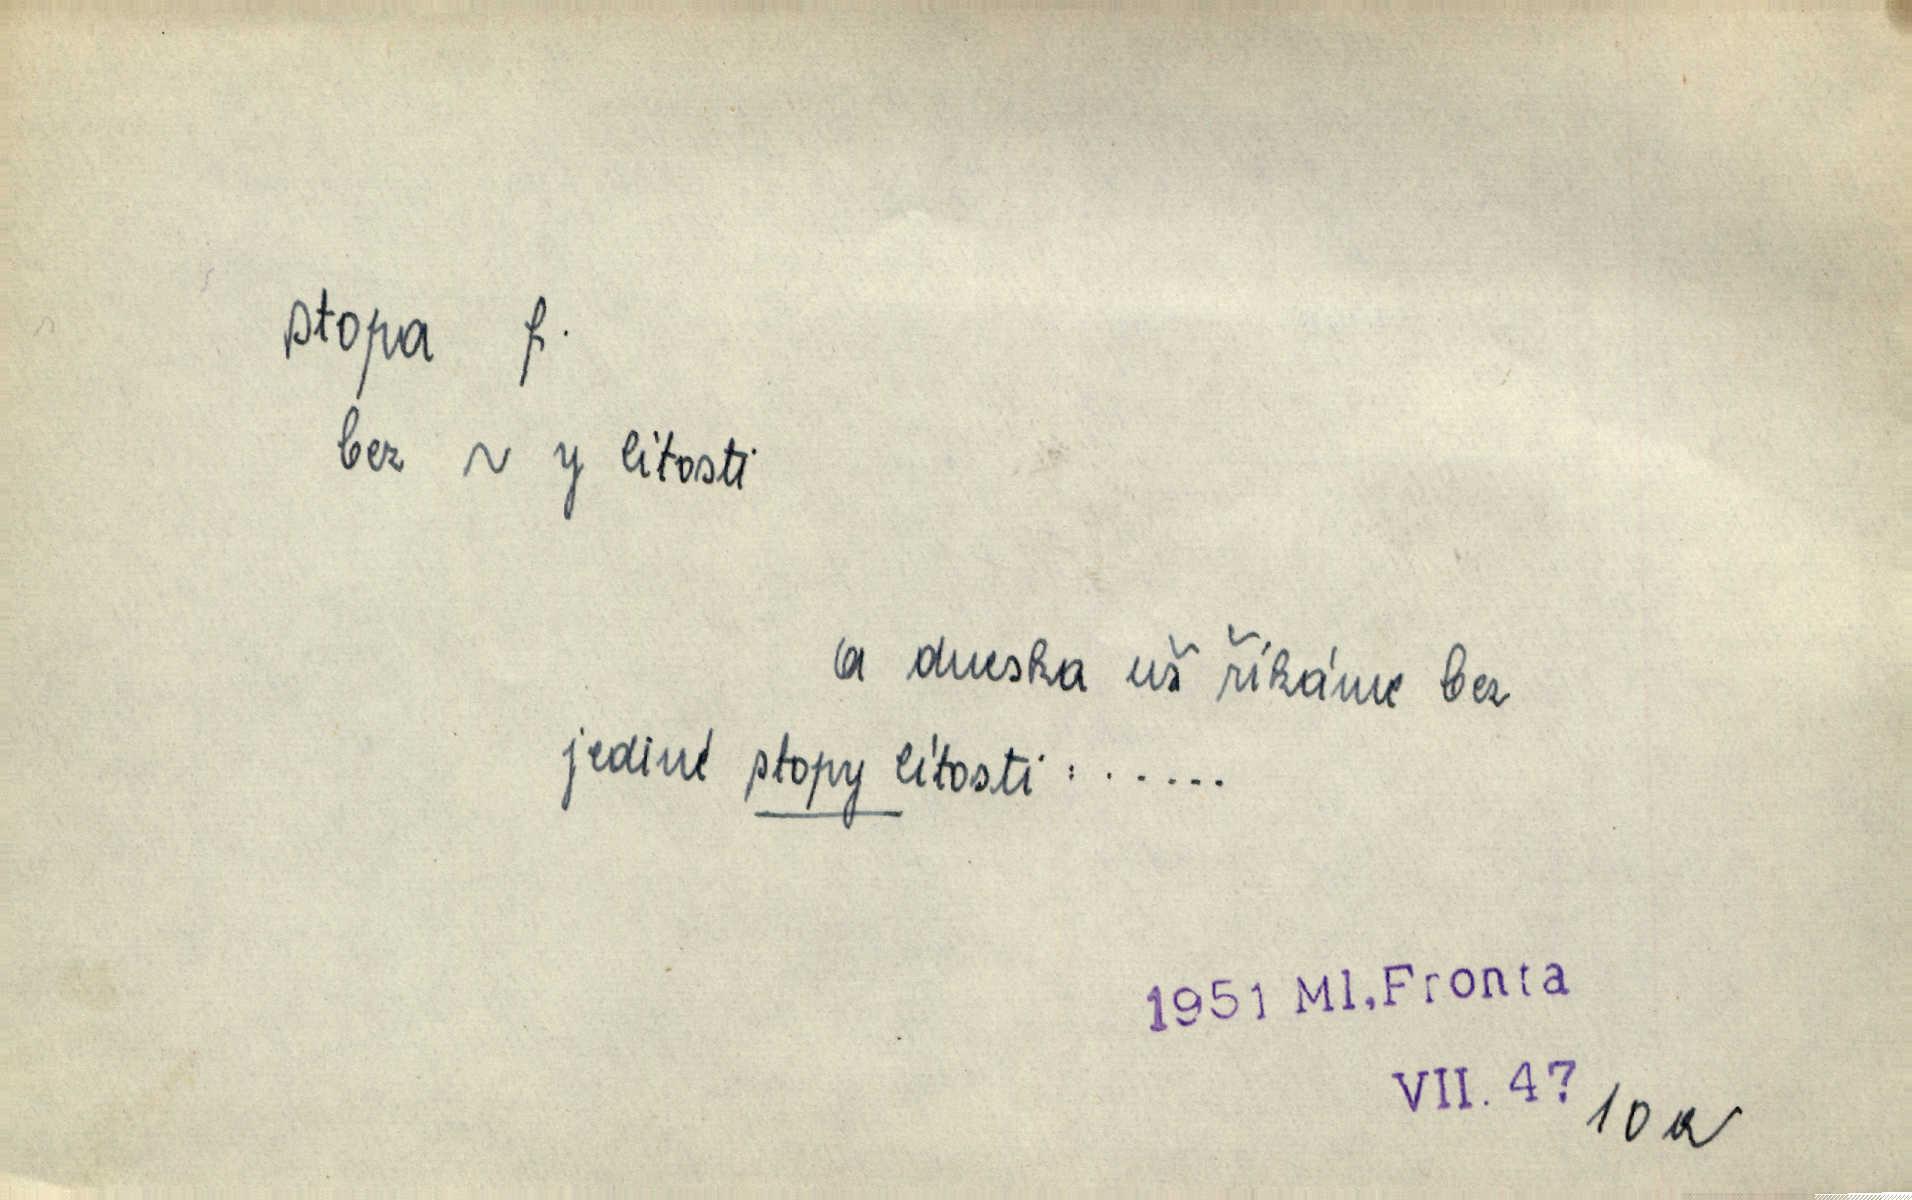 stopa f.
bez ~ y lítosti
a dneska už říkáme bez
jediné stopy lítosti: ......
1951 Ml.Fronta
VII. 47 10 a